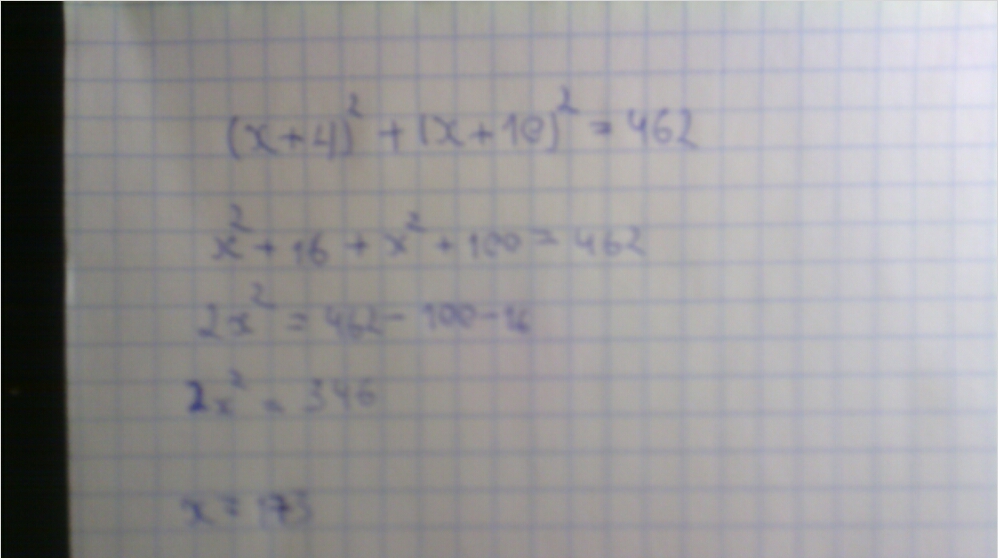 (x+4)² + (x+10)² = 462
x² + 16 + x² + 100 = 462
2x² = 462 - 100 - 16
2x² = 346
x = 173